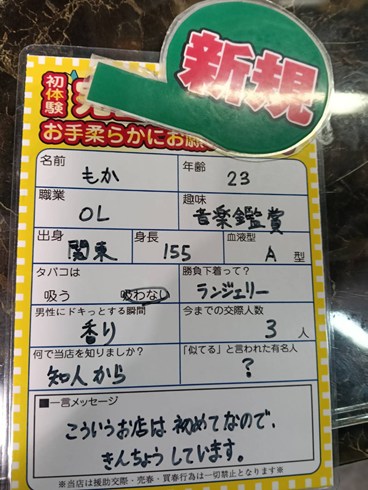 新規
初体験
お手柔らかにお願
名前 もか 年齢 23
職業 OL 趣味 音楽鑑賞
出身 関東 身長 155 血液型 A 型
タバコは 吸う 吸わなし 勝負下着って? ランジェリー
男性にドキっとする瞬間 香り 今までの交際人数 3 人
何で当店を知りましたか? 知人から 「似てる」と言われた有名人 ?
■一言メッセージ
こういうお店は 初めてなので、
きんちょうしています。
※当店は援助交際・売春・買春行為は一切禁止となります※